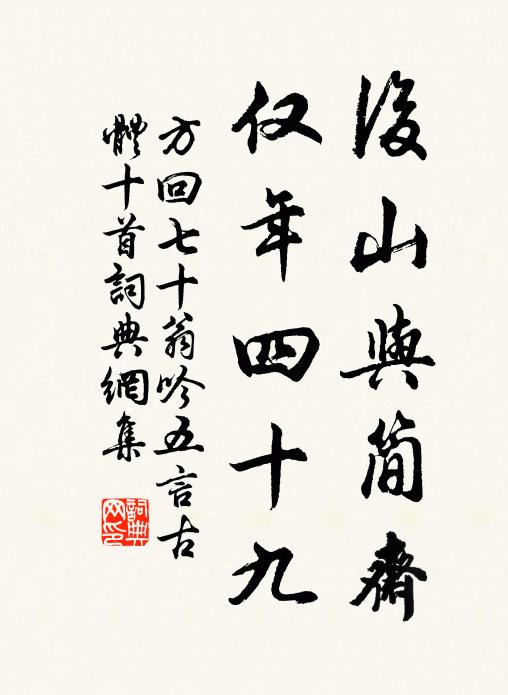 後山與簡齋
仅年四十九
方回七十翁吟五言古
體十首詞典網集
詞典
网印